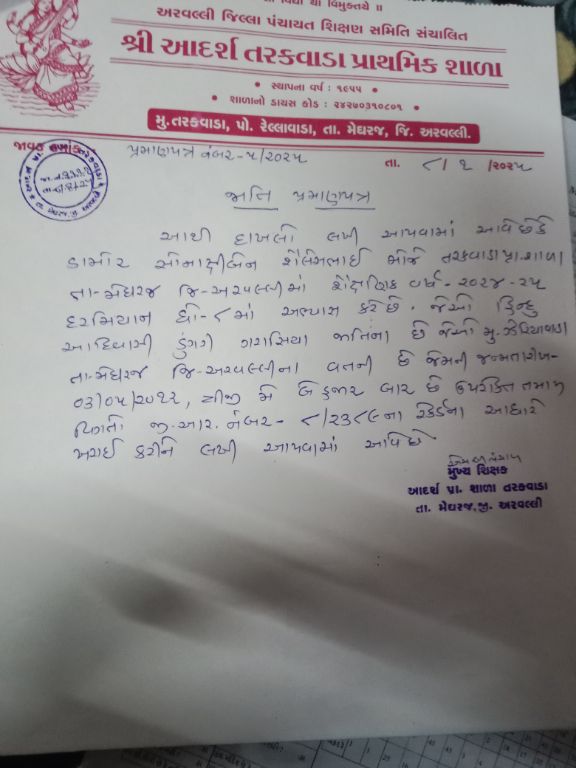 વિદ્યા યા વિમુક્તયે ॥
અરવલ્લી જિલ્લા પંચાયત શિક્ષણ સમિતિ સંચાલિત
શ્રી આદર્શ તરકવાડા પ્રાથમિક શાળા
• સ્થાપના વર્ષ : ૧૯૫૫ •
• શાળાનો ડાયસ કોડ : ૨૪૨૭૦૩૧૦૮૦૧ •
મુ.તરકવાડા, પો. રેલ્લાવાડા, તા. મેઘરજ, જિ. અરવલ્લી.
જાવક
પ્રમાણપત્ર નંબર-૫/૨૦૨૫
તા. ૮/૧/૨૦૨૫
જાતિ પ્રમાણપત્ર
આથી દાખલો લખી આપવામાં આવે છે કે
ડામોર સોનાક્ષીબેન શૈલેષભાઈ જેઓ તરકવાડા પ્રા.શાળા
તા-મેઘરજ જિ-અરવલ્લીમાં શૈક્ષણિક વર્ષ-૨૦૨૪-૨૫
દરમિયાન ધો-૮માં અભ્યાસ કરે છે. જેઓ હિન્દુ
આદિવાસી ડુંગરી ગરાસિયા જાતિના છે જેઓ મુ.
તા-મેઘરજ જિ-અરવલ્લીના વતની છે જેમની જન્મતારીખ-
૦૩/૦૫/૨૦૧૨, ત્રીજી મે બે હજાર બાર છે ઉપરોક્ત તમામ
વિગતો જી.આર.નંબર-૮/૨૩૮૯ના રેકર્ડના આધારે
ખરાઈ કરીને લખી આપવામાં આવે છે
મુખ્ય શિક્ષક
આદર્શ પ્રા. શાળા તરકવાડા
તા. મેઘરજ,જી. અરવલ્લી